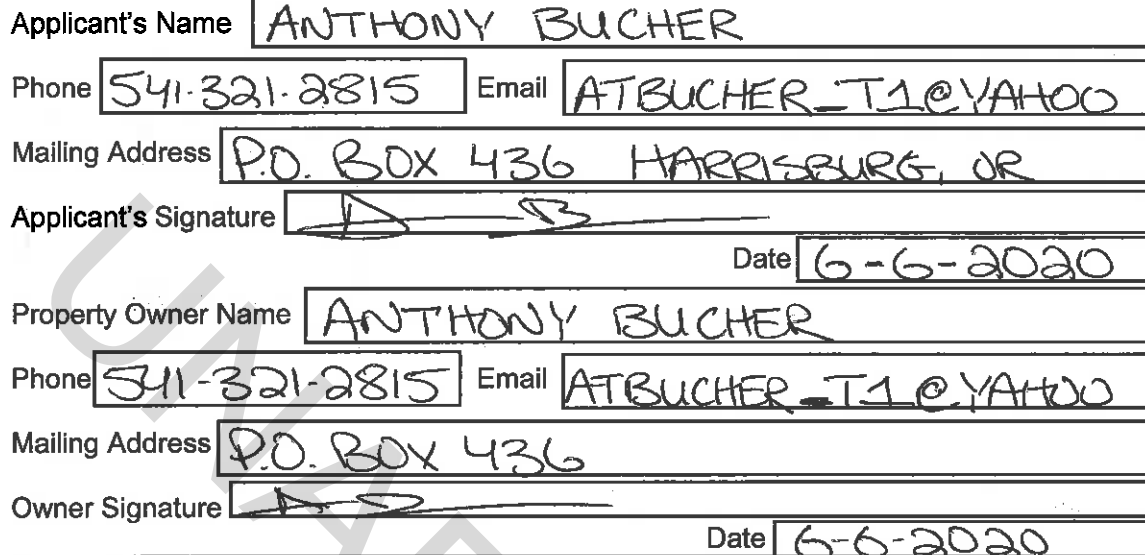 Applicant's Name ANTHONY BUCHER
Phone 541-321-2815 Email ATBUCHER_T1@YAHOO
Mailing Address P.O. BOX 436 HARRISBURG, OR
Applicant's Signature
Date 6-6-2020
Property Owner Name ANTHONY BUCHER
Phone 541-321-2815 Email ATBUCHER_T1@YAHOO
Mailing Address P.O. BOX 436
Owner Signature
Date 6-6-2020